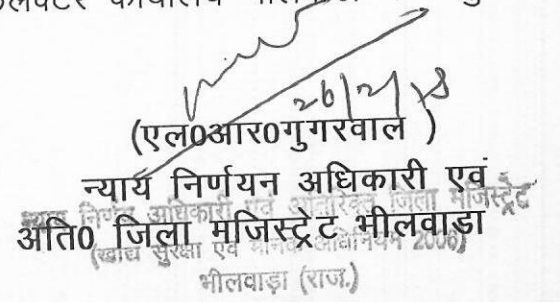 कार्यालय
26/2/18
(एल0आर0गुगरवाल )
न्याय निर्णयन अधिकारी एवं
अति0 जिला मजिस्ट्रेट भीलवाड़ा
न्याय निर्णयन अधिकारी एवं अतिरिक्त जिला मजिस्ट्रेट
(खाद्य सुरक्षा एवं मानक अधिनियम 2006)
भीलवाड़ा (राज.)